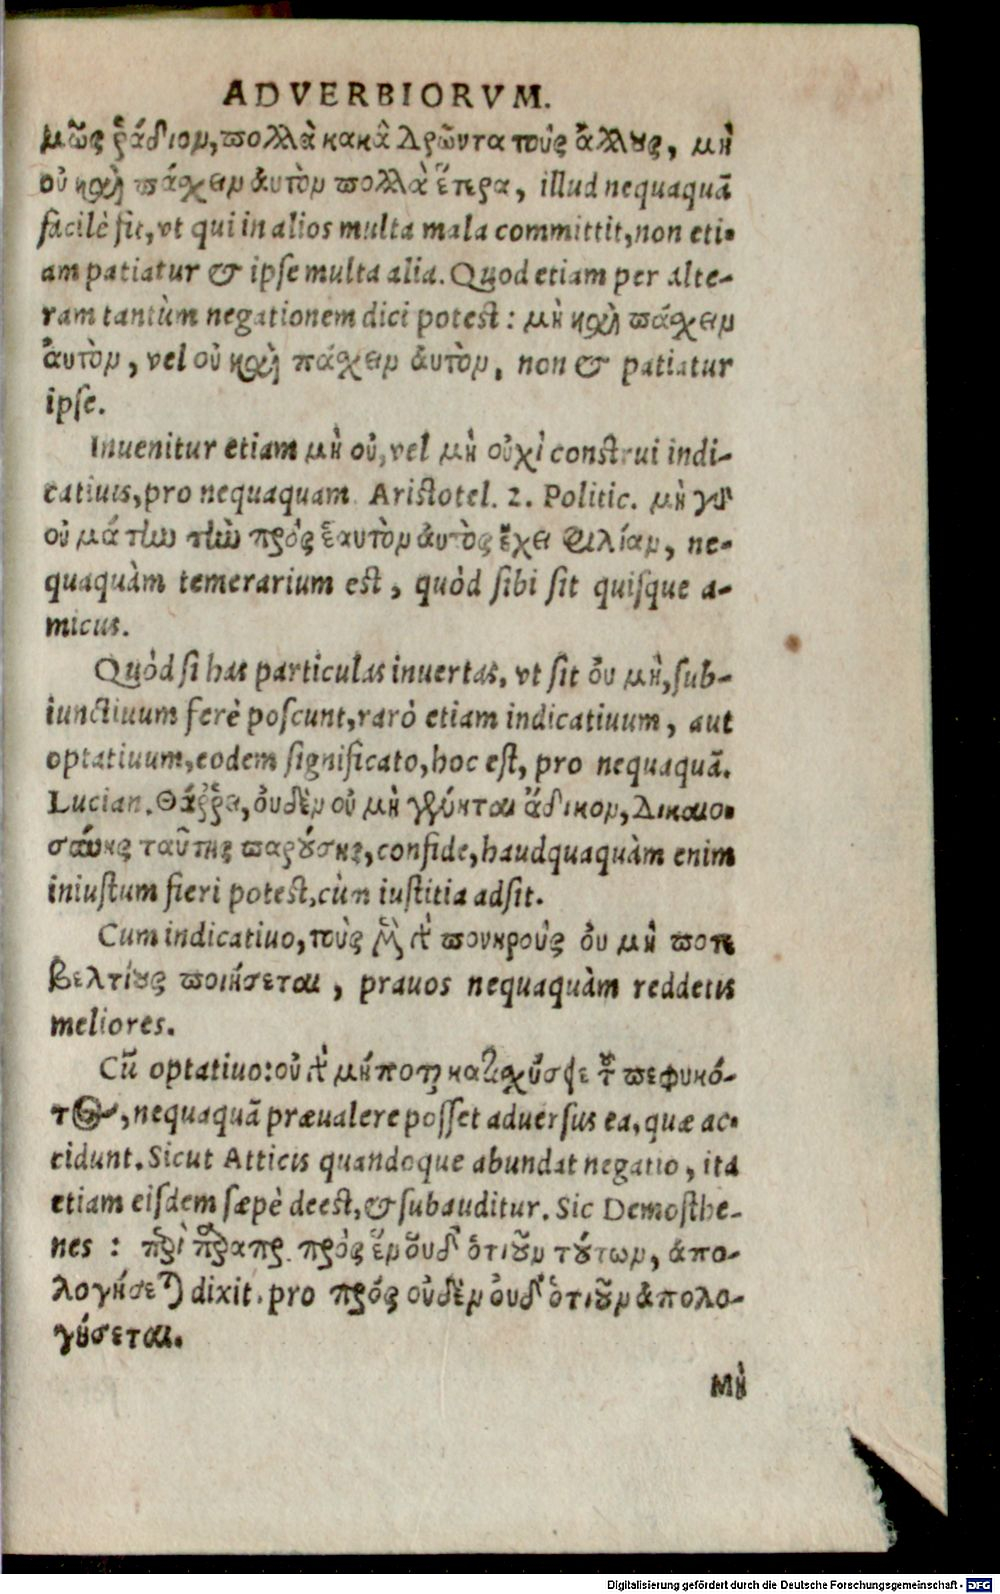 ADVERBIORVM.
μῶς ῥάδιον, πολλὰ κακὰ δρῶντα τοὺς ἄλλους, μὴ
οὐ καὶ πάσχειν ἀυτὸν πολλὰ ἕτερα, illud nequaquã
facilè fit, vt qui in alios multa mala committit, non eti-
am patiatur & ipse multa alia. Quod etiam per alte-
ram tantùm negationem dici potest: μὴ καὶ πάσχειν
ἀυτὸν, vel οὐ καὶ πάσχειν ἀυτὸν, non & patiatur
ipse.
Inuenitur etiam μὴ οὐ, vel μὴ οὐχὶ construi indi-
catiuis, pro nequaquam Aristotel. 2. Politic. μὴ γὰρ
οὐ μάτην τὴν πρὸς ἑαυτὸν ἀυτὸς ἔχει φιλίαν, ne-
quaquàm temerarium est, quòd sibi sit quisque a-
micus.
Quòd si has particulas inuertas, vt sit ὀυ μὴ, sub-
iunctiuum ferè poscunt, rarò etiam indicatiuum, aut
optatiuum, eodem significato, hoc est, pro nequaquã.
Lucian. Θάῤῥει, ὀυδὲν οὐ μὴ γένηται ἄδικον, Δικαιο-
σύνης ταύτης παρούσης, confide, haudquaquàm enim
iniustum fieri potest, cùm iustitia adsit.
Cum indicatiuo, τοὺς πονηροὺς ὀυ μὴ ποτε
βελτίους ποιήσεται, prauos nequaquàm reddetis
meliores.
Cũ optatiuo: οὐ μήποτε τῶν πεφυκό-
τος, nequaquã præualere posset aduersus ea, quæ ac-
cidunt. Sicut Atticis quandoque abundat negatio, ita
etiam eisdem sæpè deest, & subauditur. Sic Demosthe-
nes : πρὸς ἓν ὀυδ' ὁτιοῦν τούτων, ἀπο-
λογήσεται dixit. pro πρὸς οὐδὲν ὀυδ' ὁτιοῦν ἀπολο-
γήσεται.
Μὴ
Digitalisierung gefördert durch die Deutsche Forschungsgemeinschaft - DFG